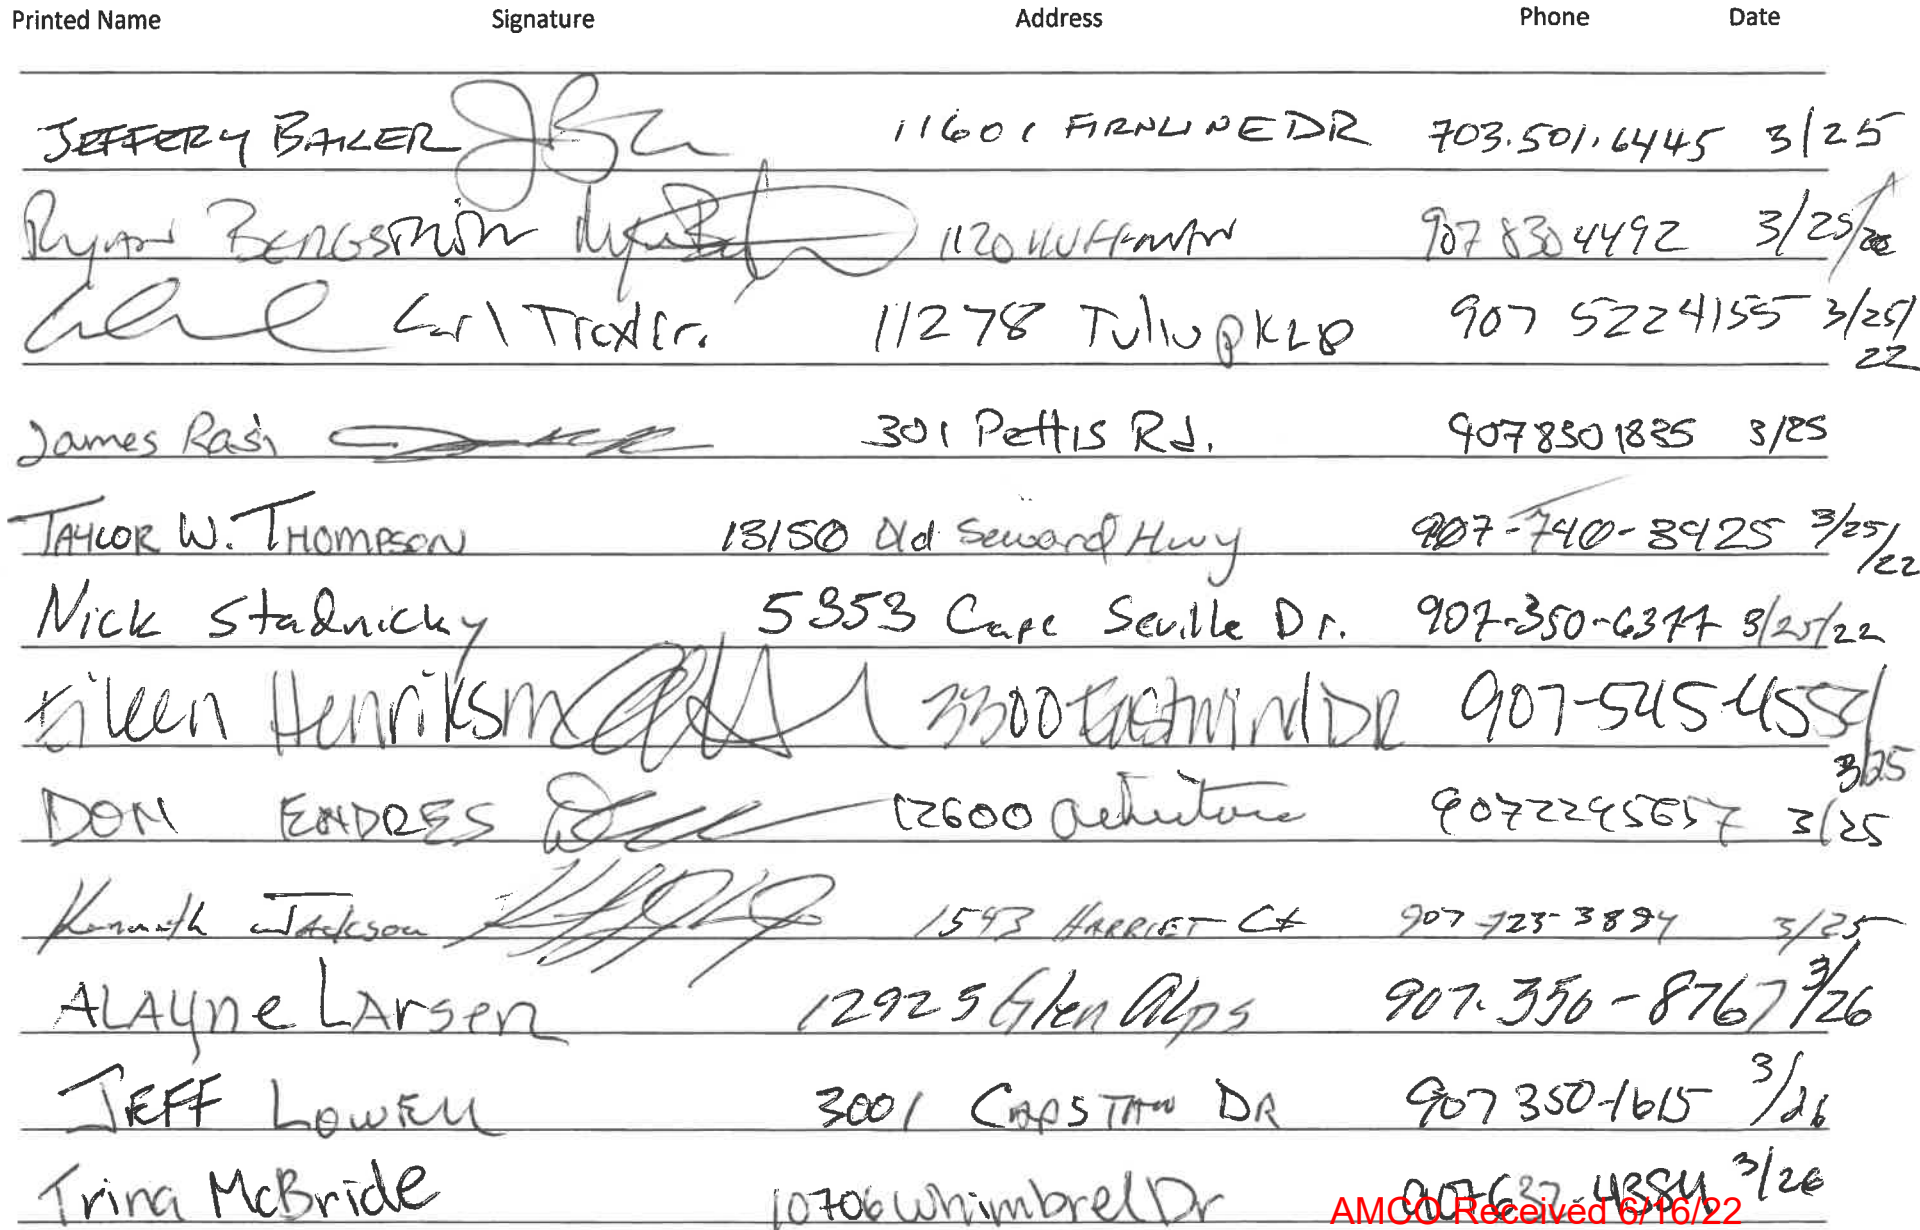 Printed Name Signature Address Phone Date
JEFFERY BAKER 11601 FIRNLINE DR 703.501.6445 3/25
Ryan BERGSTROM 1120 HUFFMAN 907 830 4492 3/25/22
Carl Trexler. 11278 Tulin PK LP 907 522 4155 3/25/22
James Rasi 301 Pettis Rd. 907 830 1835 3/25
TAYLOR W. THOMPSON 13150 Old Seward Hwy 907-740-8425 3/25/22
Nick Stadnicky 5353 Cape Seville Dr. 907-350-6377 3/25/22
Eileen Henriksen 3300 Eastwind DR 907-545-4554 3/25
DON ENDRES 12600 9072295657 3/25
Kenneth Jackson 1543 HARRIET Ct 907-723-3894 3/25
ALAyne LArsen 12925 Glen Alps 907-350-8767 3/26
JEFF LOWELL 3001 CAPSTAN DR 907 350-1615 3/26
Trina McBride 10706 Whimbrel Dr 907 632-4384 3/26
AMCO Received 6/16/22